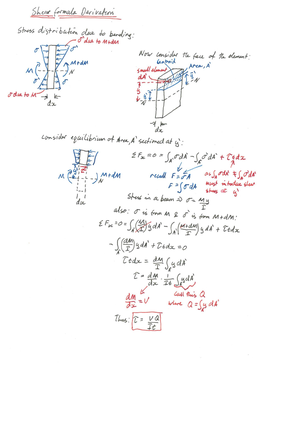 Shear Formula Derivation
Stress distribution due to bending:
σ' due to M+dM
σ
σ'
M
M+dM
N
σ due to M
dx
Now consider the face of the element:
Small element dA'
centroid
Area, A'
y'
N
t
dx
Consider equilibrium of Area, A' sectioned at y':
σ
σ'
M
M+dM
dx
ΣFx = 0 = ∫A' σdA' - ∫A' σ'dA' + τtdx
recall F = σA
F = ∫σdA
must introduce shear
stress at y'
Stress in a beam is σ = My/I
also: σ is from M & σ' is from M+dM:
ΣFx = 0 = ∫A' (M/I) y dA' - ∫A' (M+dM/I) y dA' + τtdx
- ∫A' (dM/I) y dA' + τtdx = 0
τtdx = dM/I ∫A' y dA'
τ = dM/dx · 1/It ∫A' y dA'
dM/dx = V
call this Q
where Q = ∫A' y dA'
Thus: τ = VQ/It